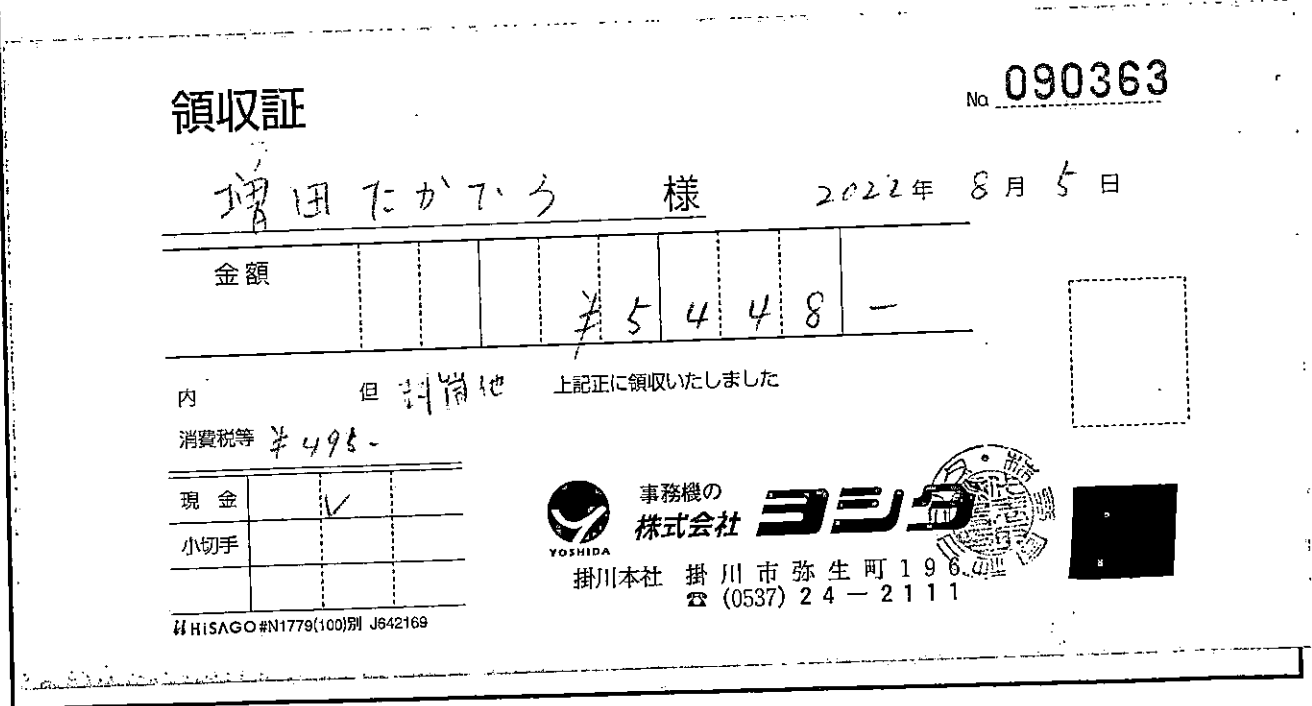 領収証
No 090363
増田たかひろ 様
2022年 8月 5日
金額 ¥5448-
内
但 封筒他 上記正に領収いたしました
消費税等 ¥495-
現金 ✓
小切手
YOSHIDA
事務機の
株式会社 ヨシダ
掛川本社 掛川市弥生町196
☎ (0537) 24-2111
HiSAGO #N1779(100)別 J642169